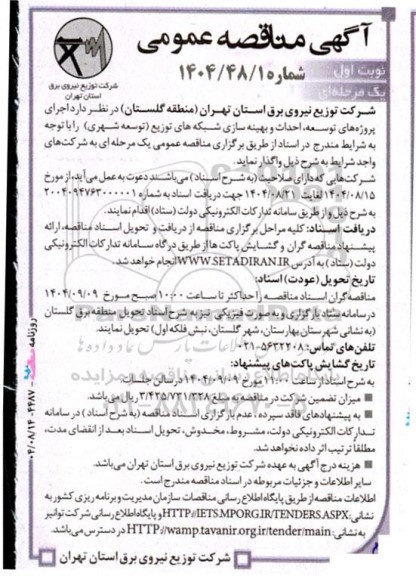 آگهی مناقصه عمومی
شماره ۱۴۰۴/۴۸/۱
نوبت اول
یک مرحله‌ای
شرکت توزیع نیروی برق
استان تهران
شرکت توزیع نیروی برق استان تهران (منطقه گلستان) در نظر دارد اجرای
پروژه های توسعه، احداث و بهینه سازی شبکه های توزیع (توسعه شهری) را با توجه
به شرایط مندرج در اسناد از طریق برگزاری مناقصه عمومی یک مرحله ای به شرکت‌های
واجد شرایط به شرح ذیل واگذار نماید.
شرکت‌هایی که دارای صلاحیت (به شرح اسناد) می‌باشند دعوت به عمل می‌آید، از مورخ
۱۴۰۴/۰۸/۱۵ لغایت ۱۴۰۴/۰۸/۲۰ جهت دریافت اسناد به شماره ۲۰۰۴۰۹۴۷۶۳۰۰۰۰۰۱
به شرح ذیل و از طریق سامانه تدارکات الکترونیکی دولت (ستاد) اقدام نمایند.
دریافت اسناد: کلیه مراحل برگزاری مناقصه از دریافت و تحویل اسناد مناقصه، ارائه
پیشنهاد مناقصه گران و گشایش پاکت ها از طریق درگاه سامانه تدارکات الکترونیکی
دولت (ستاد) به آدرس WWW.SETADIRAN.IR انجام خواهد شد.
تاریخ تحویل (عودت) اسناد:
مناقصه گران اسناد مناقصه را حداکثر تا ساعت ۱۰:۰۰ صبح مورخ ۱۴۰۴/۰۹/۰۹
در سامانه ستاد بارگزاری و به صورت فیزیکی نیز به شرح اسناد تحویل منطقه برق گلستان
(به نشانی شهرستان بهارستان، شهر گلستان، نبش فلکه اول) تحویل نمایند.
تلفن‌های تماس: ۵۶۳۲۲۴۰۸-۰۲۱
تاریخ گشایش پاکت های پیشنهاد:
به شرح اسناد از ساعت ۱۱:۰۰ مورخ ۱۴۰۴/۰۹/۰۹ در سالن جلسات
میزان تضمین شرکت در مناقصه به مبلغ ۳/۴۲۵/۷۳۱/۳۲۸ ریال می باشد.
به پیشنهادهای فاقد سپرده، عدم بارگزاری اسناد مناقصه (به شرح اسناد) در سامانه
تدارکات الکترونیکی دولت، مشروط، مخدوش، تحویل اسناد بعد از انقضای مدت،
مطلقاً ترتیب اثر داده نخواهد شد.
هزینه درج آگهی به عهده شرکت توزیع نیروی برق استان تهران می باشد.
سایر اطلاعات و جزئیات مربوطه در اسناد مناقصه مندرج است.
اطلاعات مناقصه از طریق پایگاه اطلاع رسانی مناقصات سازمان مدیریت و برنامه ریزی کشور به
نشانی: HTTP://IETS.MPORG.IR/TENDERS.ASPX و پایگاه اطلاع رسانی شرکت توانیر
به نشانی: HTTP://wamp.tavanir.org.ir/tender/main در دسترس می باشد.
شرکت توزیع نیروی برق استان تهران
روزنامه
۰۴/۰۸/۱۴-۴۴۸۷